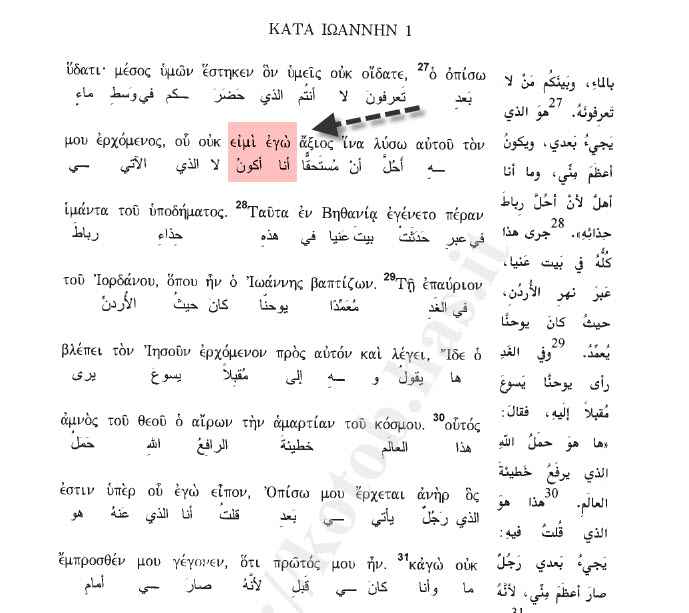 ΚΑΤΑ ΙΩΑΝΝΗΝ 1
ὕδατι· μέσος ὑμῶν ἕστηκεν ὃν ὑμεῖς οὐκ οἴδατε, 27ὁ ὀπίσω
بَعدِ تَعرفونَ لا أنتُم الذي حَضَرَ ـكم في وَسَطِ ماءٍ
μου ἐρχόμενος, οὗ οὐκ εἰμὶ ἐγὼ ἄξιος ἵνα λύσω αὐτοῦ τὸν
ـهِ أَحُلَّ أنْ مُستَحقًّا أنا أكونُ لا الذي الآتي ـي
ἱμάντα τοῦ ὑποδήματος. 28Ταῦτα ἐν Βηθανίᾳ ἐγένετο πέραν
في عبرِ حَدَثَتْ بيت عنيا في هذهِ حِذاءِ رباطَ
τοῦ Ἰορδάνου, ὅπου ἦν ὁ Ἰωάννης βαπτίζων. 29Τῇ ἐπαύριον
في الغَدِ مُعَمِّدًا يوحنّا كانَ حيثُ الأُردنِّ
βλέπει τὸν Ἰησοῦν ἐρχόμενον πρὸς αὐτόν καὶ λέγει, Ἴδε ὁ
ها يقولُ و ـهِ إلى مُقبِلاً يسوع يرى
ἀμνὸς τοῦ θεοῦ ὁ αἴρων τὴν ἁμαρτίαν τοῦ κόσμου. 30οὗτός
هذا العالَمِ خطيئةَ الرافعُ اللهِ حَمَلُ
ἐστιν ὑπὲρ οὗ ἐγὼ εἶπον, Ὀπίσω μου ἔρχεται ἀνὴρ ὃς
الذي رَجُلٌ يأتي ـي بَعدِ قلتُ أنا الذي عنهُ هو
ἔμπροσθέν μου γέγονεν, ὅτι πρῶτός μου ἦν. 31κἀγὼ οὐκ
ما وأنا كانَ ـي قَبلَ لأنّهُ صارَ ـي أمام
بالماءِ، وبَينَكُم مَنْ لا
تَعرِفونَهُ. 27هوَ الذي
يَجيءُ بَعدي، ويكونُ
أعظَمَ مِنِّي، وما أنا
أهلٌ لأنْ أحُلَّ رِباطَ
حِذائِهِ». 28جرى هذا
كُلُّهُ في بَيت عَنيا،
عَبرَ نهرِ الأُردُن،
حيثُ كانَ يوحنّا
يُعمِّدُ. 29وفي الغَدِ
رأى يوحنّا يَسوعَ
مُقبِلاً إليهِ، فقالَ:
«ها هوَ حمَلُ اللهِ
الذي يرفَعُ خَطيئةَ
العالَم. 30هذا هوَ
الذي قُلتُ فيهِ:
يَجيءُ بَعدي رَجُلٌ
صارَ أعظَمَ مِنِّي، لأنَّهُ
31
://kotob.has.it